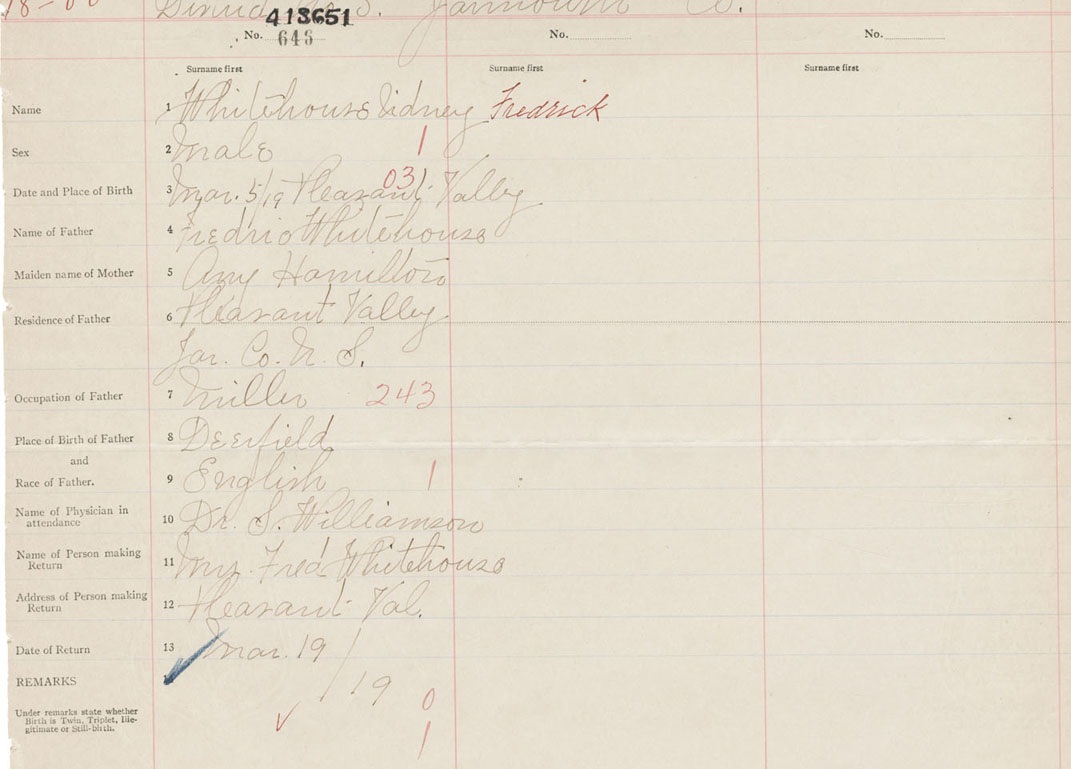 Yarmouth Co.
413651
No. 643 No. No.
Surname first Surname first Surname first
Name 1 Whitehouse Sidney Fredrick
Sex 2 Male 1
03
Date and Place of Birth 3 Mar. 5/19 Pleasant Valley
Name of Father 4 Fredric Whitehouse
Maiden name of Mother 5 Amy Hamilton
Residence of Father 6 Pleasant Valley
Yar. Co. N. S.
Occupation of Father 7 Miller 243
Place of Birth of Father 8 Deerfield
and
Race of Father. 9 English 1
Name of Physician in
attendance 10 Dr. S. Williamson
Name of Person making
Return 11 Mrs. Fred Whitehouse
Address of Person making
Return 12 Pleasant Val.
Date of Return 13 Mar. 19/
REMARKS /19
0
Under remarks state whether
Birth is Twin, Triplet, Ille-
gitimate or Still-birth.
1